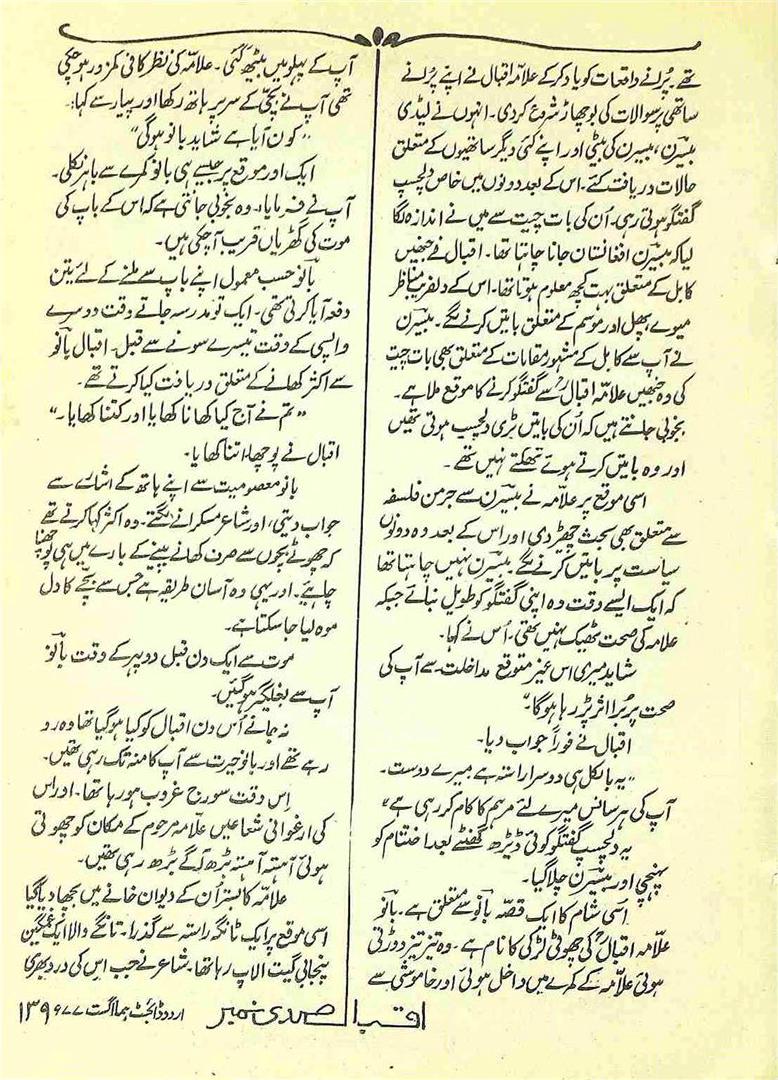 تھے۔ پُرانے واقعات کو یاد کر کے علامہ اقبال نے اپنے پرانے
ساتھی پر سوالات کی بوچھاڑ شروع کر دی۔ انہوں نے لیڈی
ہیسرن، ہیسرن کی بیٹی اور اپنے کئی دیگر ساتھیوں کے متعلق
حالات دریافت کئے۔ اس کے بعد دونوں میں خاص دلچسپ
گفتگو ہوتی رہی۔ اُن کی بات چیت سے میں نے اندازہ لگا
لیا کہ ہیسرن افغانستان جانا چاہتا تھا۔ اقبال نے جنھیں
کابل کے متعلق بہت کچھ معلوم ہوتا تھا۔ اس کے دلفریب مناظر
میوے، پھل اور موسم کے متعلق باتیں کرنے لگے۔ ہیسرن
نے آپ سے کابل کے مشہور مقامات کے متعلق بھی بات چیت
کی وہ جنھیں علامہ اقبالؒ سے گفتگو کرنے کا موقع ملا ہے۔
بخوبی جانتے ہیں کہ اُن کی باتیں بڑی دلچسپ ہوتی تھیں
اور وہ باتیں کرتے ہوئے تھکتے نہیں تھے۔
اسی موقع پر علامہ نے ہیسرن سے جرمن فلسفہ
سے متعلق بھی بحث چھیڑ دی اور اس کے بعد وہ دونوں
سیاست پر باتیں کرنے لگے۔ ہیسرن نہیں چاہتا تھا
کہ ایک ایسے وقت وہ اپنی گفتگو کو طویل بنائے جبکہ
علامہ کی صحت ٹھیک نہیں تھی۔ اُس نے کہا۔
شاید میری اس غیر متوقع مداخلت سے آپ کی
صحت پر بُرا اثر پڑ رہا ہوگا۔"
اقبال نے فوراً جواب دیا۔
"یہ بالکل ہی دوسرا راستہ ہے میرے دوست۔
آپ کی ہر سانس میرے لئے مرہم کا کام کر رہی ہے"
یہ دلچسپ گفتگو کوئی ڈیڑھ گھنٹے بعد اختتام کو
پہنچی اور ہیسرن چلا گیا۔
اسی شام کا ایک قصہ بانو سے متعلق ہے۔ بانو
علامہ اقبالؒ کی چھوٹی لڑکی کا نام ہے۔ وہ تیز تیز دوڑتی
ہوئی علامہ کے کمرے میں داخل ہوئی اور خاموشی سے
آپ کے پہلو میں بیٹھ گئی۔ علامہ کی نظر کافی کمزور ہو چکی
تھی آپ نے بچی کے سر پر ہاتھ رکھا اور پیار سے کہا:۔
"کون آیا ہے شاید بانو ہوگی"
ایک اور موقع پر جیسے ہی بانو کمرے سے باہر نکلی۔
آپ نے فرمایا، وہ بخوبی جانتی ہے کہ اس کے باپ کی
موت کی گھڑیاں قریب آ چکی ہیں۔
بانو حسب معمول اپنے باپ سے ملنے کے لئے تین
دفعہ آیا کرتی تھی۔ ایک تو مدرسہ جاتے وقت دوسرے
واپسی کے وقت تیسرے سونے سے قبل۔ اقبال بانو
سے اکثر کھانے کے متعلق دریافت کیا کرتے تھے۔
"تم نے آج کیا کھانا کھایا اور کتنا کھایا۔"
اقبال نے پوچھا، اتنا کھایا۔
بانو معصومیت سے اپنے ہاتھ کے اشارے سے
جواب دیتی، اور شاعر مسکرانے لگتے۔ وہ اکثر کہا کرتے تھے
کہ چھوٹے بچوں سے صرف کھانے پینے کے بارے میں ہی پوچھنا
چاہئیے۔ اور یہی وہ آسان طریقہ ہے جس سے بچے کا دل
موہ لیا جا سکتا ہے۔
موت سے ایک دن قبل دوپہر کے وقت بانو
آپ سے بغلگیر ہو گئیں۔
نہ جانے اُس دن اقبال کو کیا ہو گیا تھا وہ رو
رہے تھے اور بانو حیرت سے آپ کا منہ تک رہی تھیں۔
اِس وقت سورج غروب ہو رہا تھا۔ اور اس
کی ارغوانی شعاعیں علامہ مرحوم کے مکان کو چھوتی
ہوئی آہستہ آہستہ آگے بڑھ رہی تھیں۔
علامہ کا بستر اُن کے دیوان خانے میں بچھا دیا گیا
اسی موقع پر ایک ٹانگہ راستہ سے گذرا۔ تانگے والا ایک غمگین
پنجابی گیت الاپ رہا تھا۔ شاعر نے جب اس کی درد بھری
اقبال صدی نمبر
اردو ڈائجسٹ ہما اگست ۷۷ء ۱۳۹